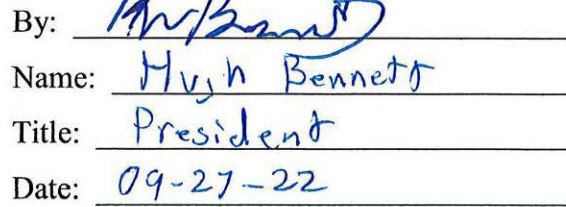 By:
Name: Hugh Bennett
Title: President
Date: 09-27-22